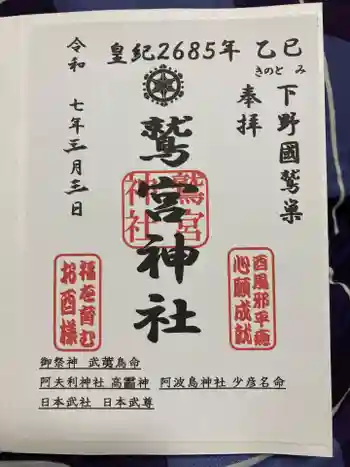 皇紀2685年 乙巳
きのと み
奉拝
下野國鷲巣
鷲宮神社
鷲宮
神社
令和 七年三月三日
酉風邪平癒
心願成就
福を育む
お酉様
御祭神 武夷鳥命
阿夫利神社 高龗神 阿波島神社 少彦名命
日本武社 日本武尊